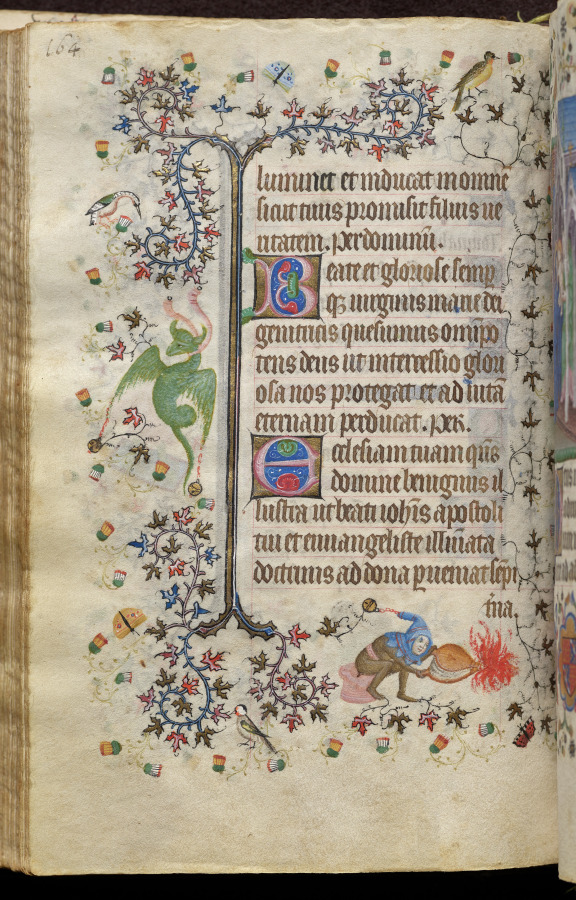 164
luminet et inducat in omnē
sicut tuus promisit filius ue
ritatem. Per dominū.
Beate et gloriose semp
q̄ȝ uirginis marie dei
genitricis quesumus omīpo
tens deus ut intercessio glori
osa nos protegat et ad uitā
eternam perducat. Per.
Ecclesiam tuam qm̄s
domine benignus il
lustra ut beati ioh̄is apostoli
tui et euuangeliste illūīata
doctrinis ad dona pueniat sēpi
tīna.